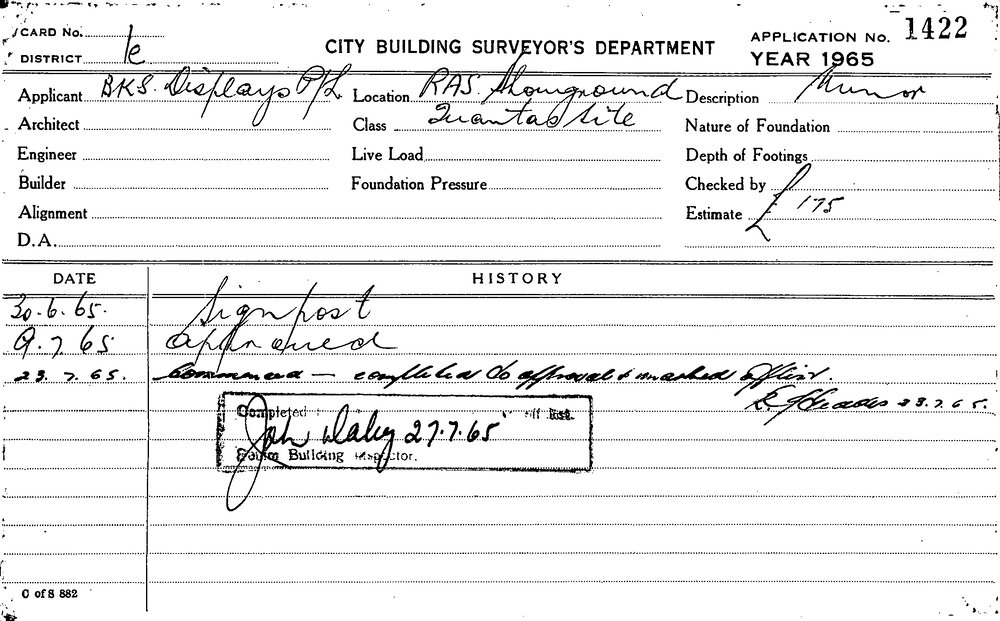 CARD No.
CITY BUILDING SURVEYOR'S DEPARTMENT
APPLICATION No. 1422
DISTRICT
YEAR 1965
Applicant BKS. Displays P/L Location RAS. Showground Description Minor
Architect Class Quantas Site Nature of Foundation
Engineer Live Load Depth of Footings
Builder Foundation Pressure Checked by
Alignment Estimate £ 175
D.A.
DATE HISTORY
30.6.65. Signpost
9.7.65 approved
23.7.65. Commenced — completed to approval & marked off list.
23.7.65.
Completed off list.
John Daley 27.7.65
Building Inspector.
C of S 882